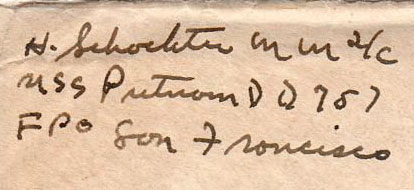 H. Schockter M M 2/c
USS Putnam DD 757
FPO San Francisco